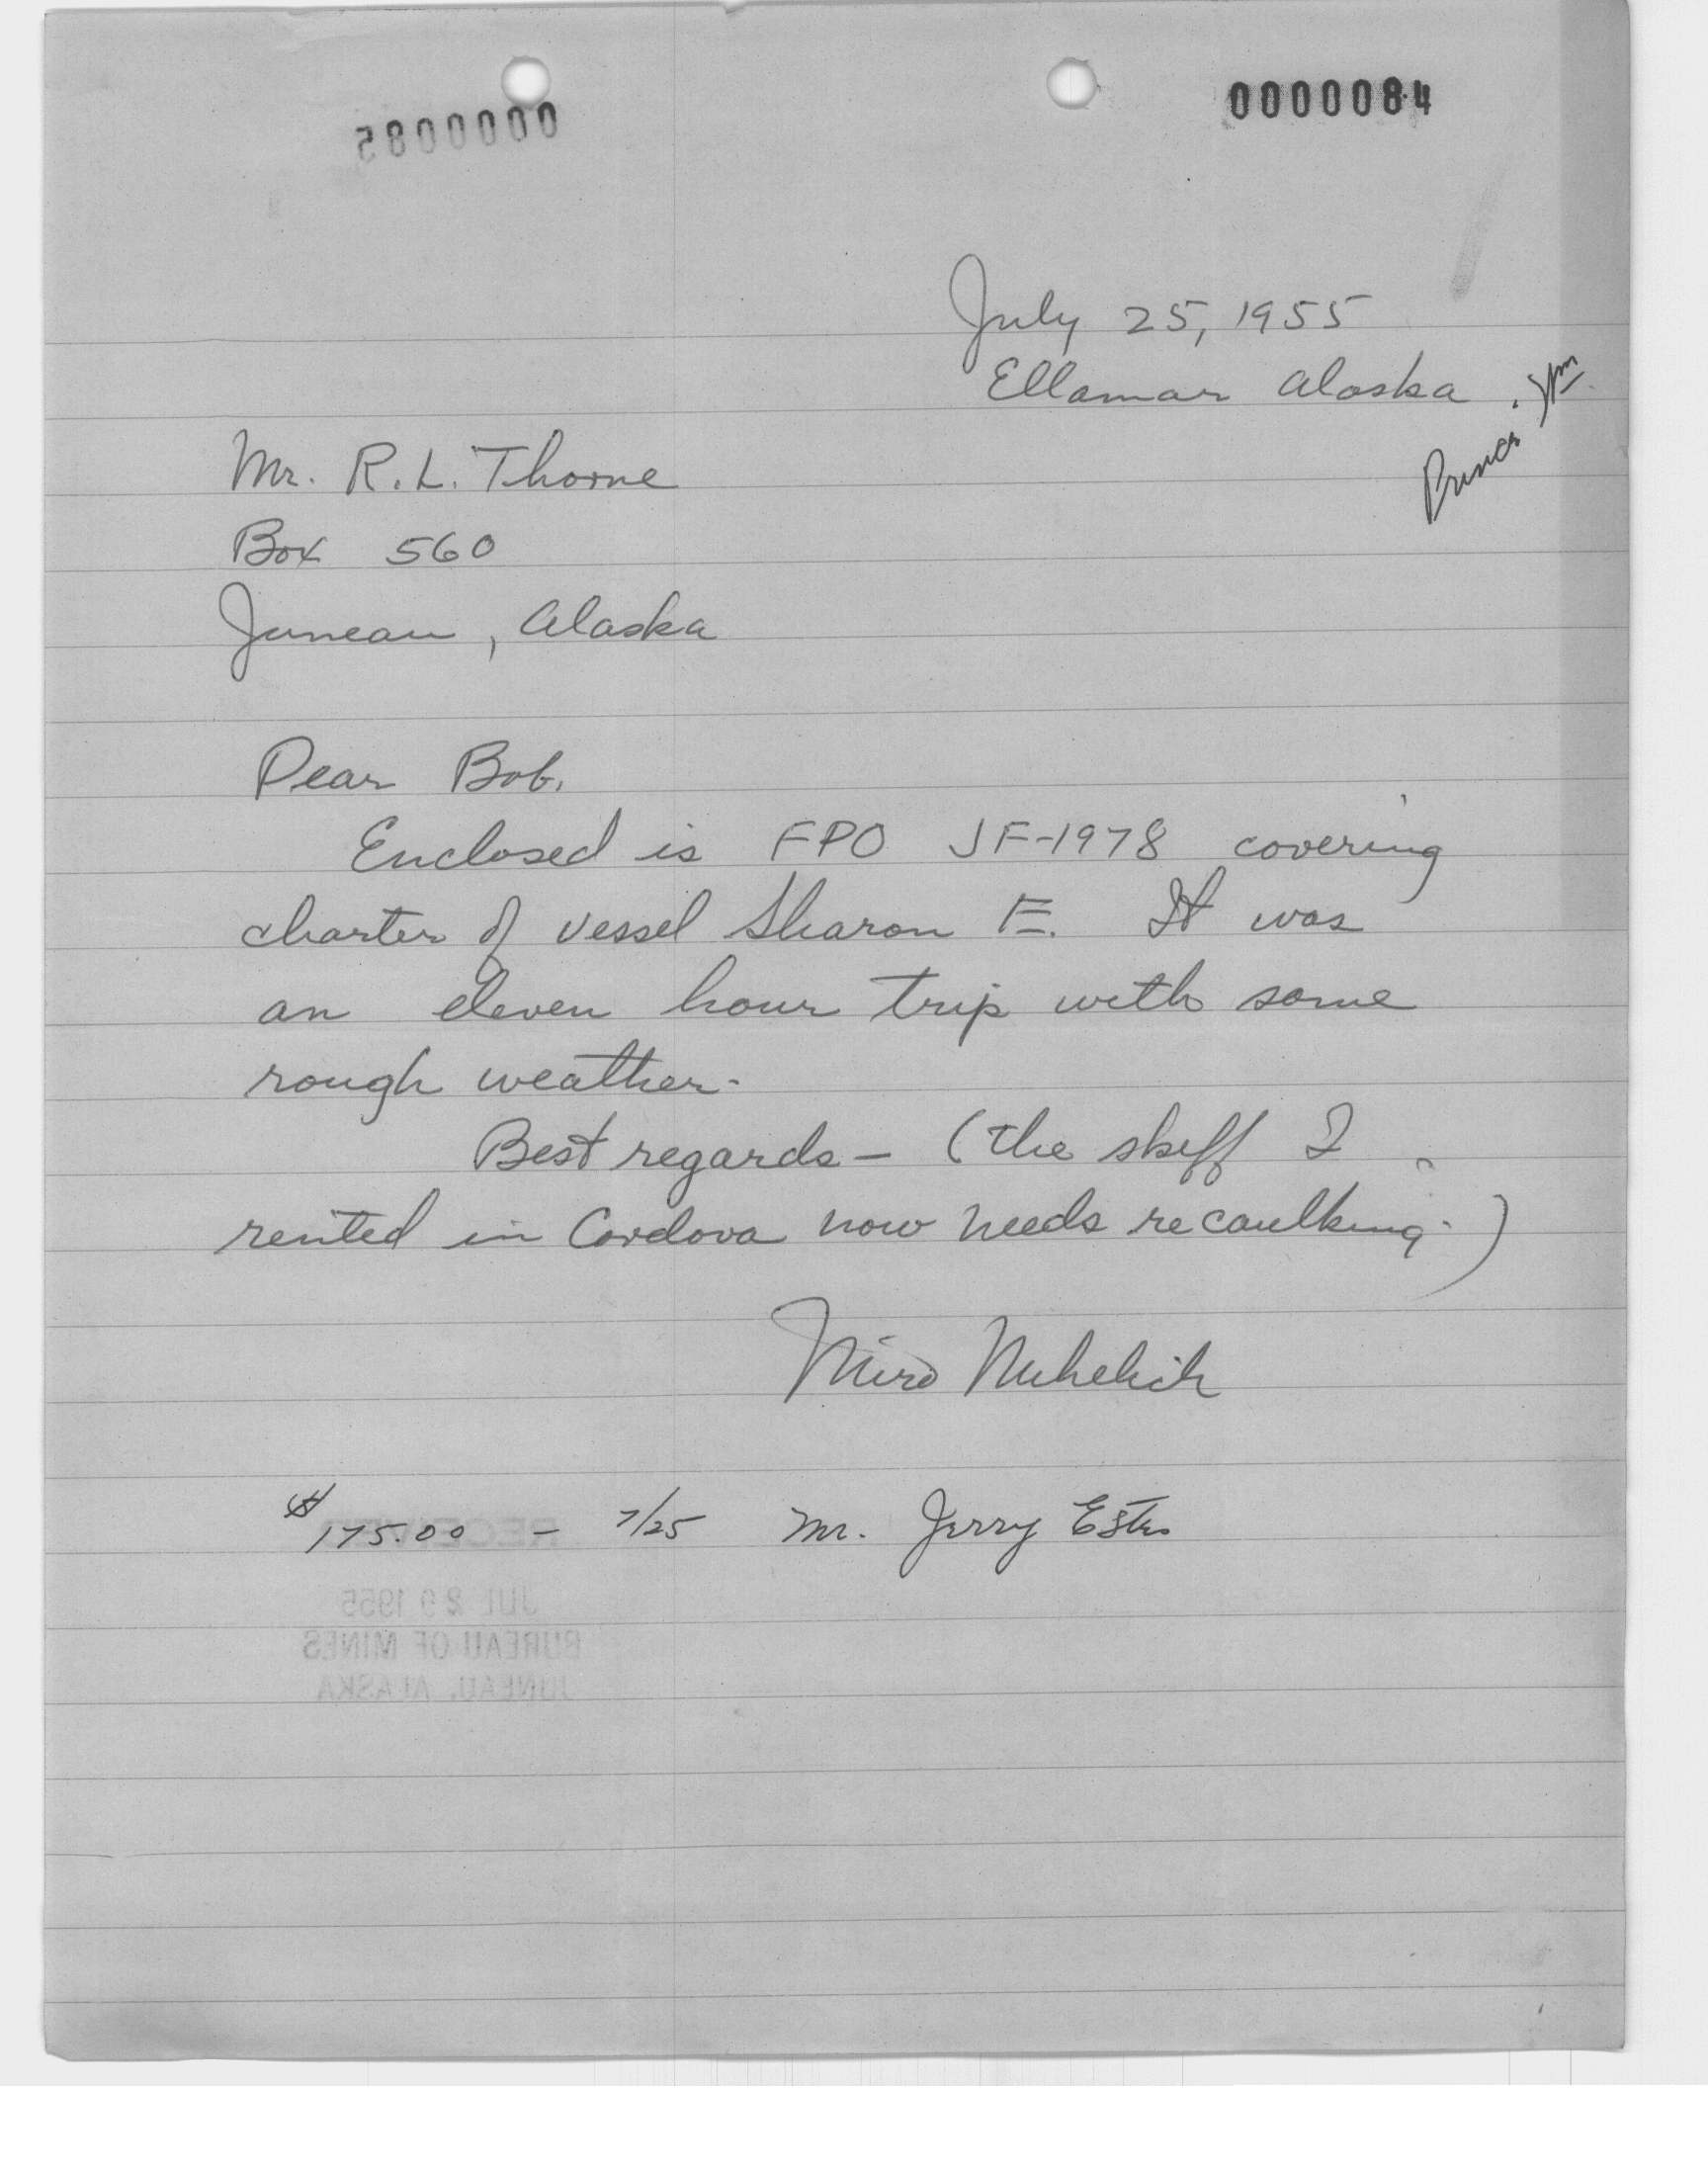 0000084
0000085
July 25, 1955
Ellamar Alaska
Prince Wm
Mr. R.L. Thorne
Box 560
Juneau, Alaska
Dear Bob,
Enclosed is FPO JF-1978 covering
charter of vessel Sharon E. It was
an eleven hour trip with some
rough weather.
Best regards - (the skiff I
rented in Cordova now needs recaulking.)
Miro Mihelich
$175.00 - 7/25 Mr. Jerry Estes
RECEIVED
JUL 29 1955
BUREAU OF MINES
JUNEAU, ALASKA